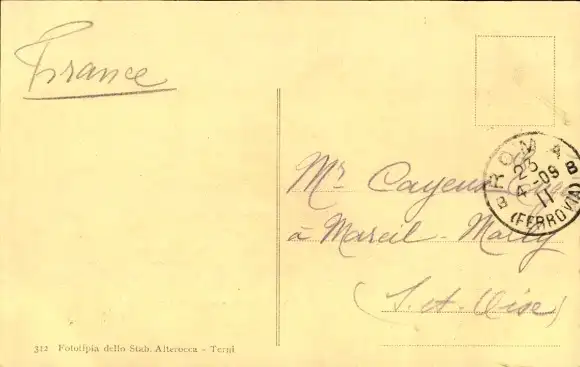 France
ROMA
B 23 B
4-09
11
(FERROVIA)
Mr Cayeux
à Mareil-Marly
(S. et. Oise)
312 Fototipia dello Stab. Alterocca - Terni